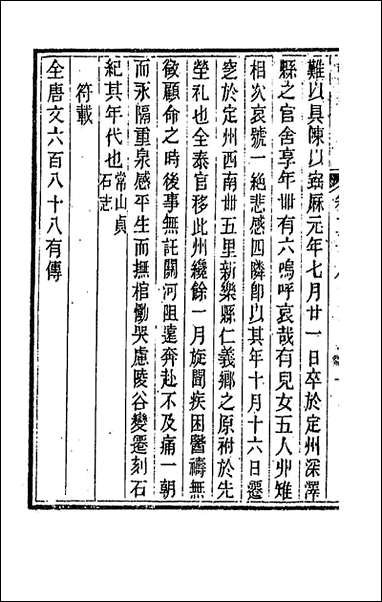 難以具陳以寶厤元年七月廿一日卒於定州深澤
縣之官舍享年卌有六嗚呼哀哉有兒女五人丱雉
相次哀號一絶悲感四隣卽以其年十月十六日遷
窆於定州西南卅五里新樂縣仁義鄉之原祔於先
塋礼也全泰官移此州纔餘一月旋聞疾困醫禱無
徵顧命之時後事無託關河阻遠奔赴不及痛一朝
而永隔重泉感平生而撫棺慟哭慮陵谷變遷刻石
紀其年代也常山貞石志
符載
全唐文六百八十八有傳